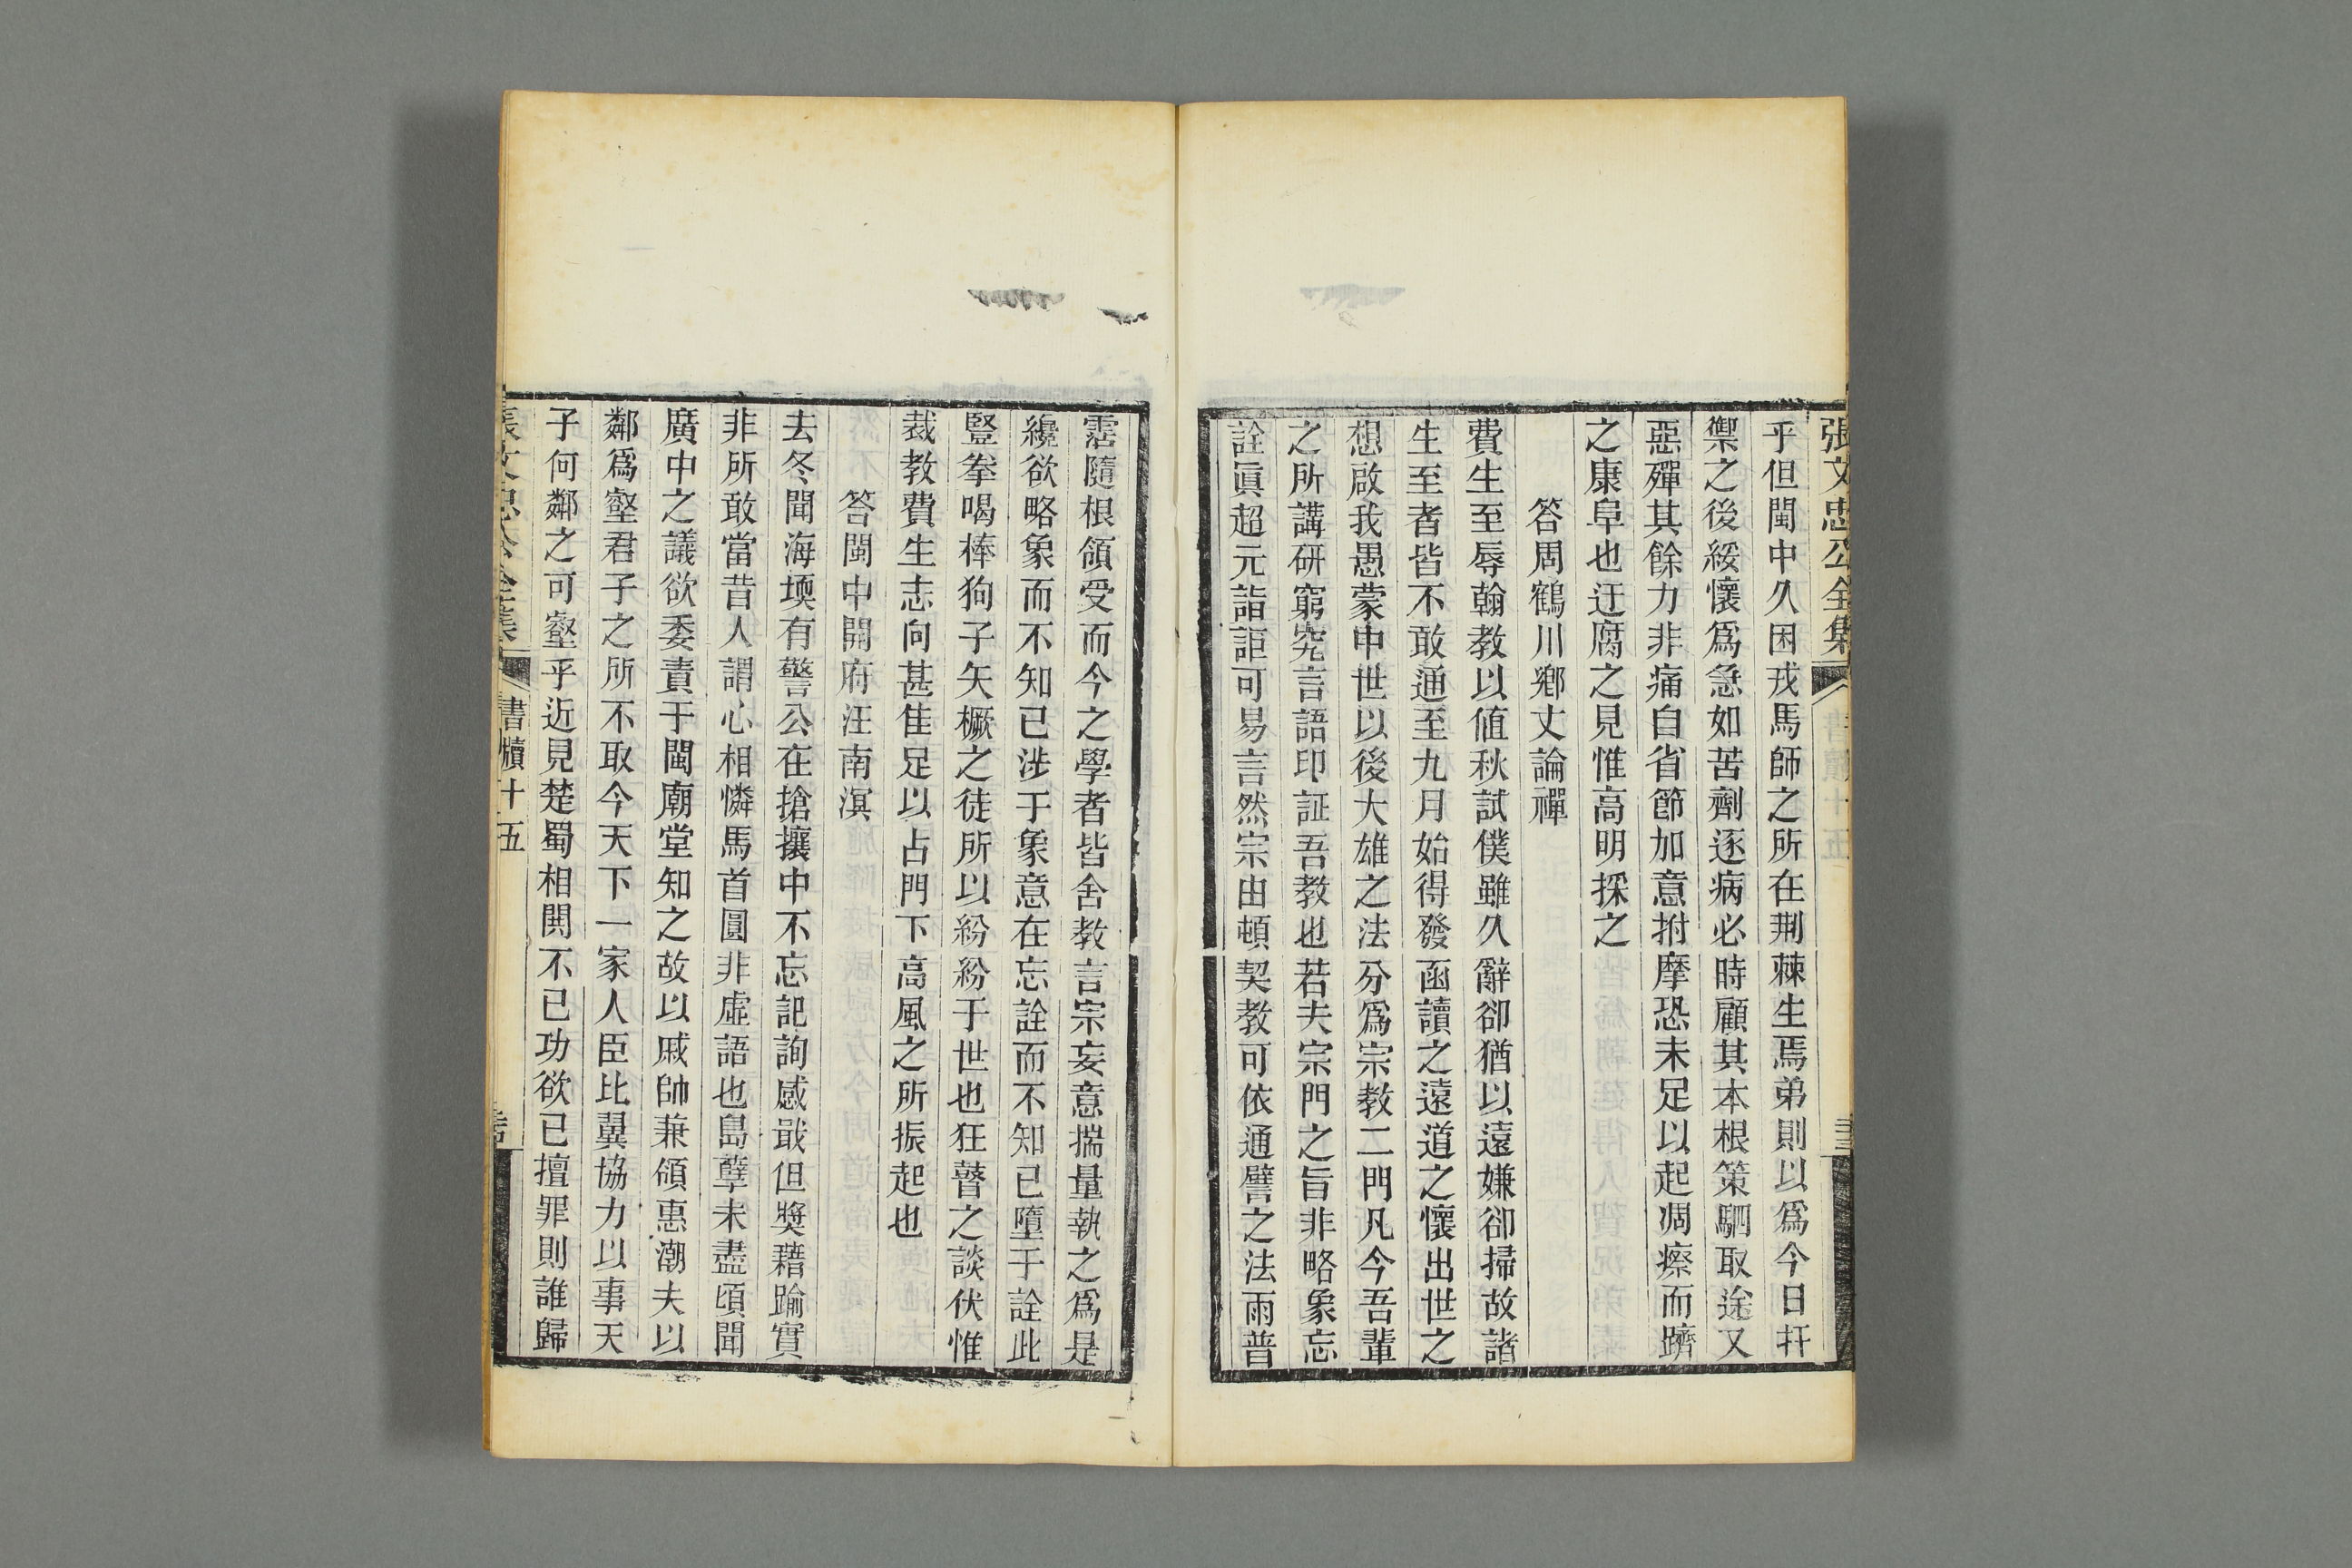 張文忠公全集
乎但閩中久困戎馬師之所在荆棘生焉弟則以爲今日扞
禦之後綏懷爲急如苦劑逐病必時顧其本根策駟取途又
惡殫其餘力非痛自省節加意拊摩恐未足以起凋瘵而躋
之康阜也迂腐之見惟高明採之
答周鶴川鄉丈論禪
費生至辱翰教以値秋試僕雖久辭卻猶以遠嫌卻掃故諸
生至者皆不敢通至九月始得發函讀之遠道之懷出世之
想啟我愚蒙中世以後大雄之法分爲宗教二門凡今吾輩
之所講研窮究言語印証吾教也若夫宗門之旨非略象忘
詮眞超元詣詎可易言然宗由頓契教可依通譬之法雨普
霑隨根領受而今之學者皆舍教言宗妄意揣量執之爲是
纔欲略象而不知已涉于象意在忘詮而不知已墮于詮此
豎拳喝棒狗子矢橛之徒所以紛紛于世也狂瞽之談伏惟
裁教費生志向甚佳足以占門下高風之所振起也
答閩中開府汪南溟
去冬聞海堧有警公在搶攘中不忘記詢感戢但奬藉踰實
非所敢當昔人謂心相憐馬首圓非虛語也島孽未盡頃聞
廣中之議欲委責于閩廟堂知之故以戚帥兼領惠潮夫以
鄰爲壑君子之所不取今天下一家人臣比翼協力以事天
子何鄰之可壑乎近見楚蜀相閧不已功欲已擅罪則誰歸
張文忠公全集
書牘十五